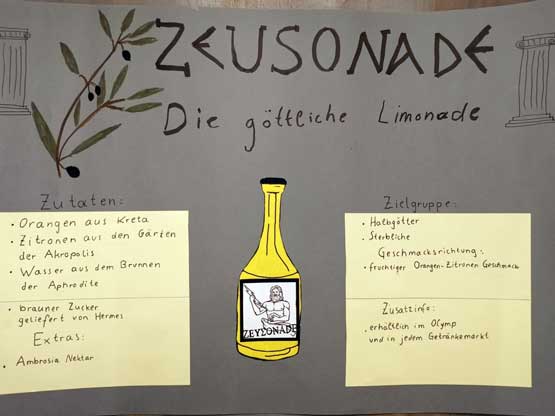 ZEUSONADE
Die göttliche Limonade
Zutaten:
• Orangen aus Kreta
• Zitronen aus den Gärten
der Akropolis
• Wasser aus dem Brunnen
der Aphrodite
• brauner Zucker
geliefert von Hermes
Extras:
• Ambrosia Nektar
ZEYSONADE
Zielgruppe:
• Halbgötter
• Sterbliche
Geschmacksrichtung:
• fruchtiger Orangen-Zitronen Geschmack
Zusatzinfo:
• erhältlich im Olymp
und in jedem Getränkemarkt